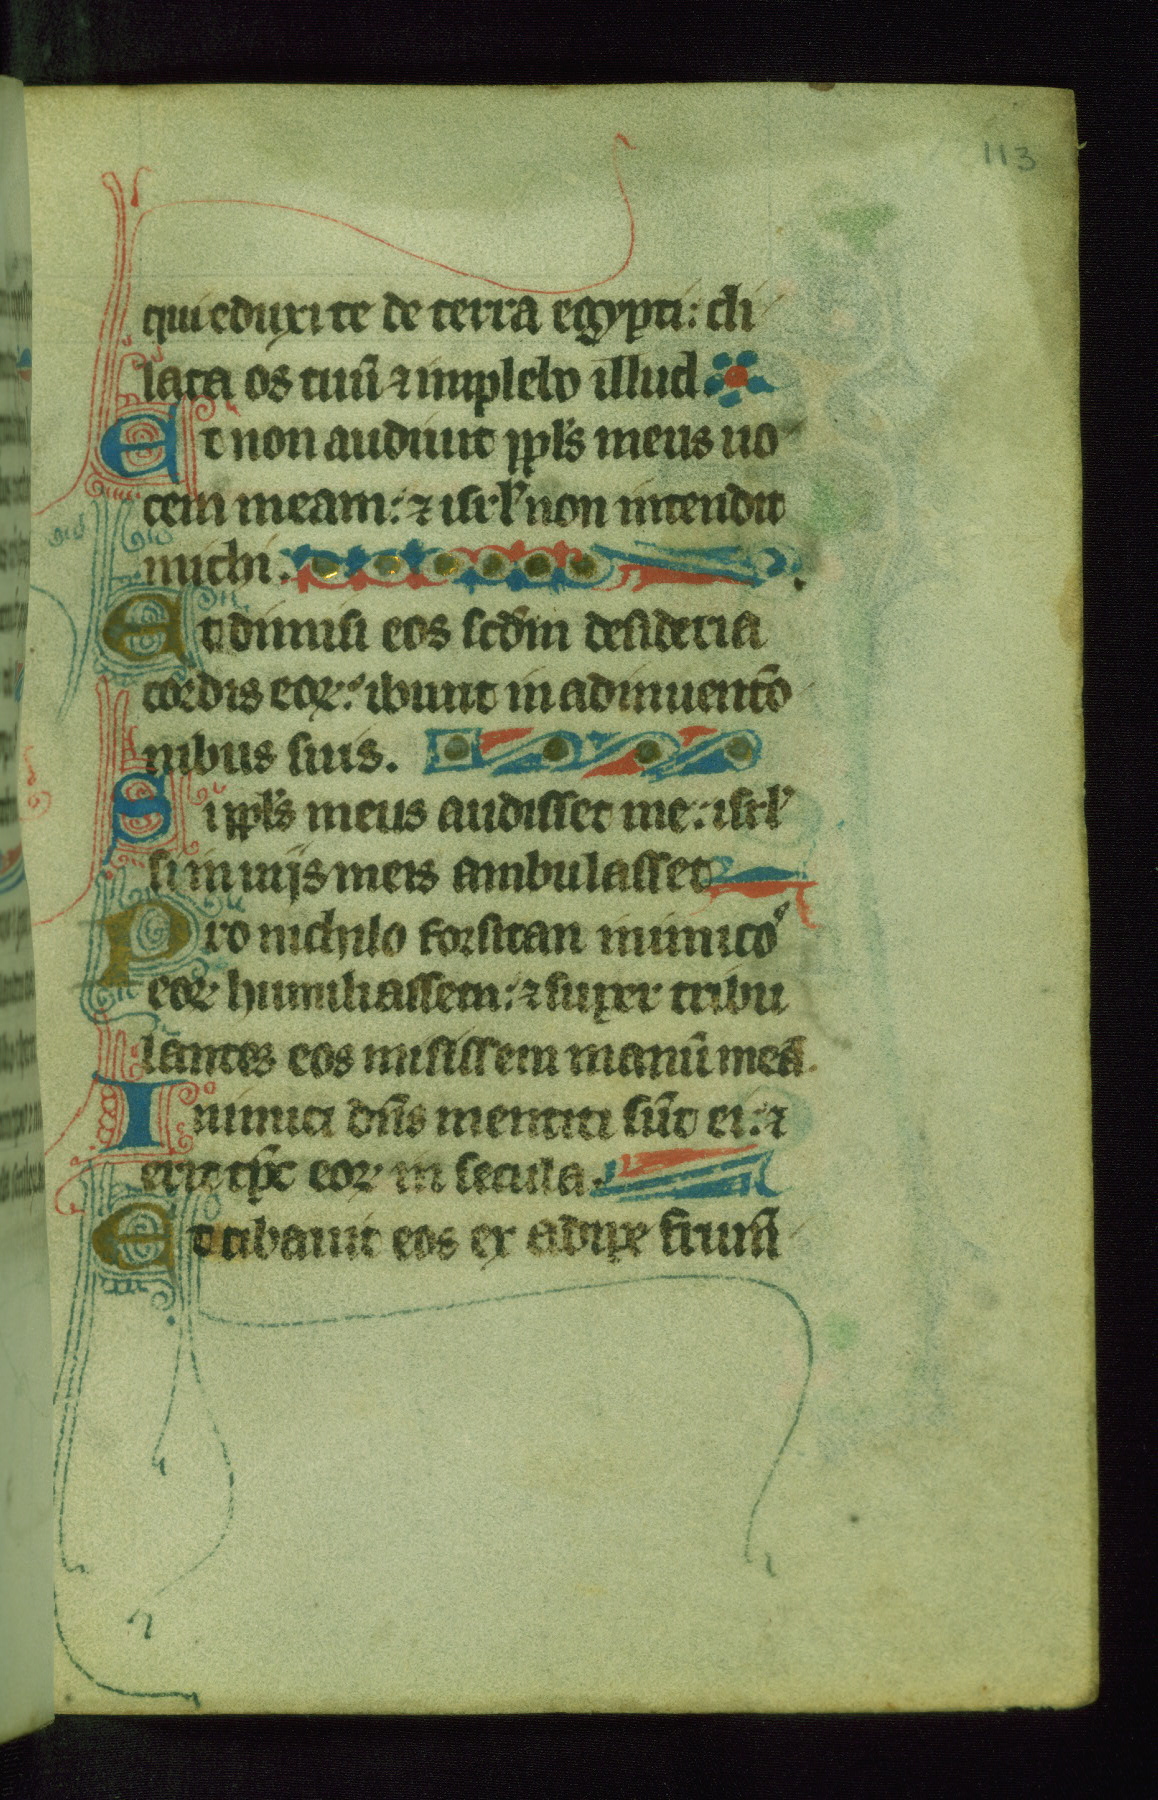 113
qui eduxi te de terra egypti: di
lata os tuū ⁊ implebo illud
Et non audiuit ppl's meus uo
cem meam: ⁊ isrl' non intendit
michi.
Et dimisi eos scd̄m desideria
cordis eoꝝ: ibunt in adinuentō
nibus suis.
Si ppl's meus audisset me: isrl'
si in uijs meis ambulasset
Pro nichilo forsitan inimico⁹
eoꝝ humiliassem: ⁊ super tribu
lantes eos misissem manū meā.
Inimici dn̄s mentiti sūt ei: ⁊
erit tp̄c eoꝝ in secula.
Et cibauit eos ex adipe frumī